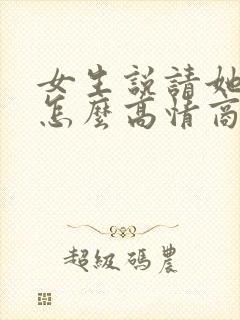 女生説請她
怎麼高情商
超級碼農